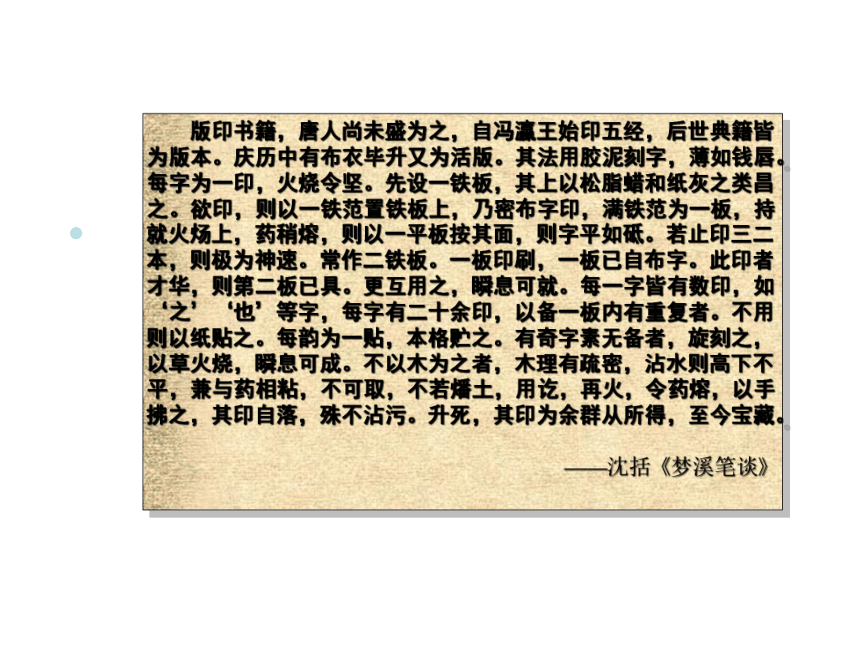 版印书籍，唐人尚未盛为之，自冯瀛王始印五经，后世典籍皆
为版本。庆历中有布衣毕升又为活版。其法用胶泥刻字，薄如钱唇。
每字为一印，火烧令坚。先设一铁板，其上以松脂蜡和纸灰之类昌
之。欲印，则以一铁范置铁板上，乃密布字印，满铁范为一板，持
就火炀上，药稍熔，则以一平板按其面，则字平如砥。若止印三二
本，则极为神速。常作二铁板。一板印刷，一板已自布字。此印者
才华，则第二板已具。更互用之，瞬息可就。每一字皆有数印，如
‘之’ ‘也’等字，每字有二十余印，以备一板内有重复者。不用
则以纸贴之。每韵为一贴，本格贮之。有奇字素无备者，旋刻之，
以草火烧，瞬息可成。不以木为之者，木理有疏密，沾水则高下不
平，兼与药相粘，不可取，不若燔土，用讫，再火，令药熔，以手
拂之，其印自落，殊不沾污。升死，其印为余群从所得，至今宝藏。
——沈括《梦溪笔谈》